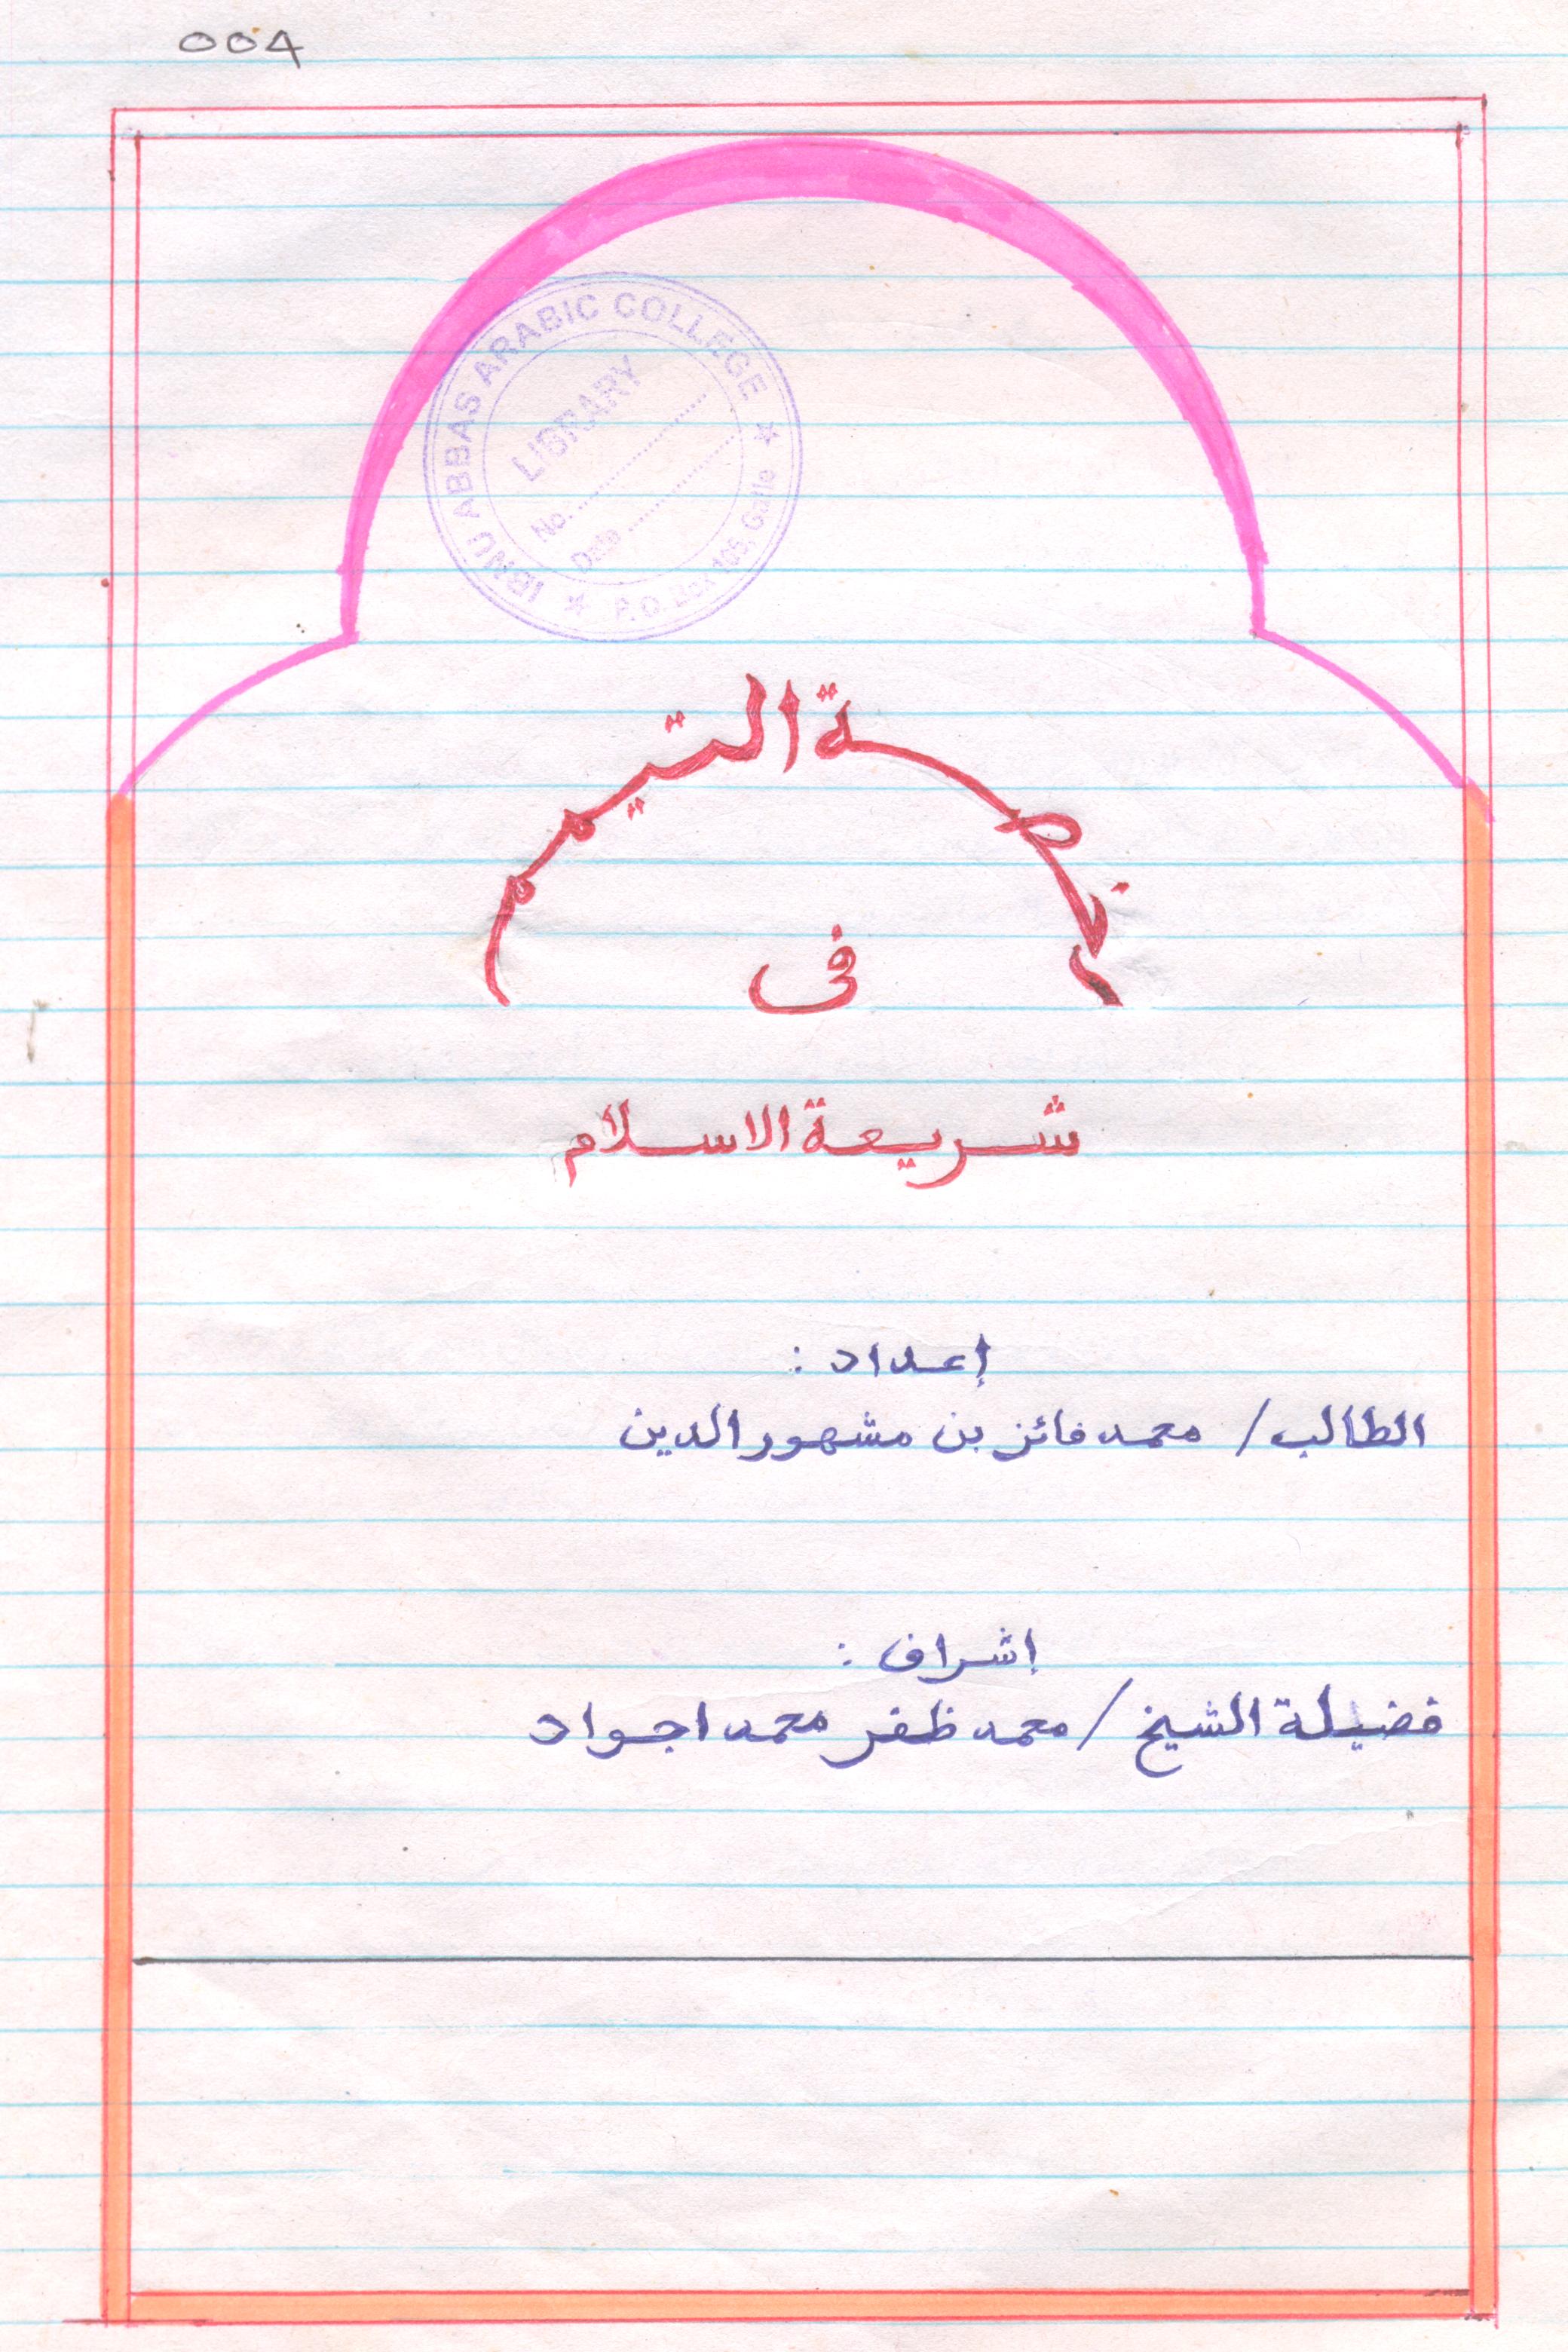 004
IBNU ABBAS ARABIC COLLEGE
LIBRARY
No. ..................
Date ..................
P.O. Box 105, Galle
رخصة التيمم
فى
شريعة الاسلام
إعداد :
الطالب / محمد فائز بن مشهور الدين
اشراف :
فضيلة الشيخ / محمد ظفر محمد اجواد